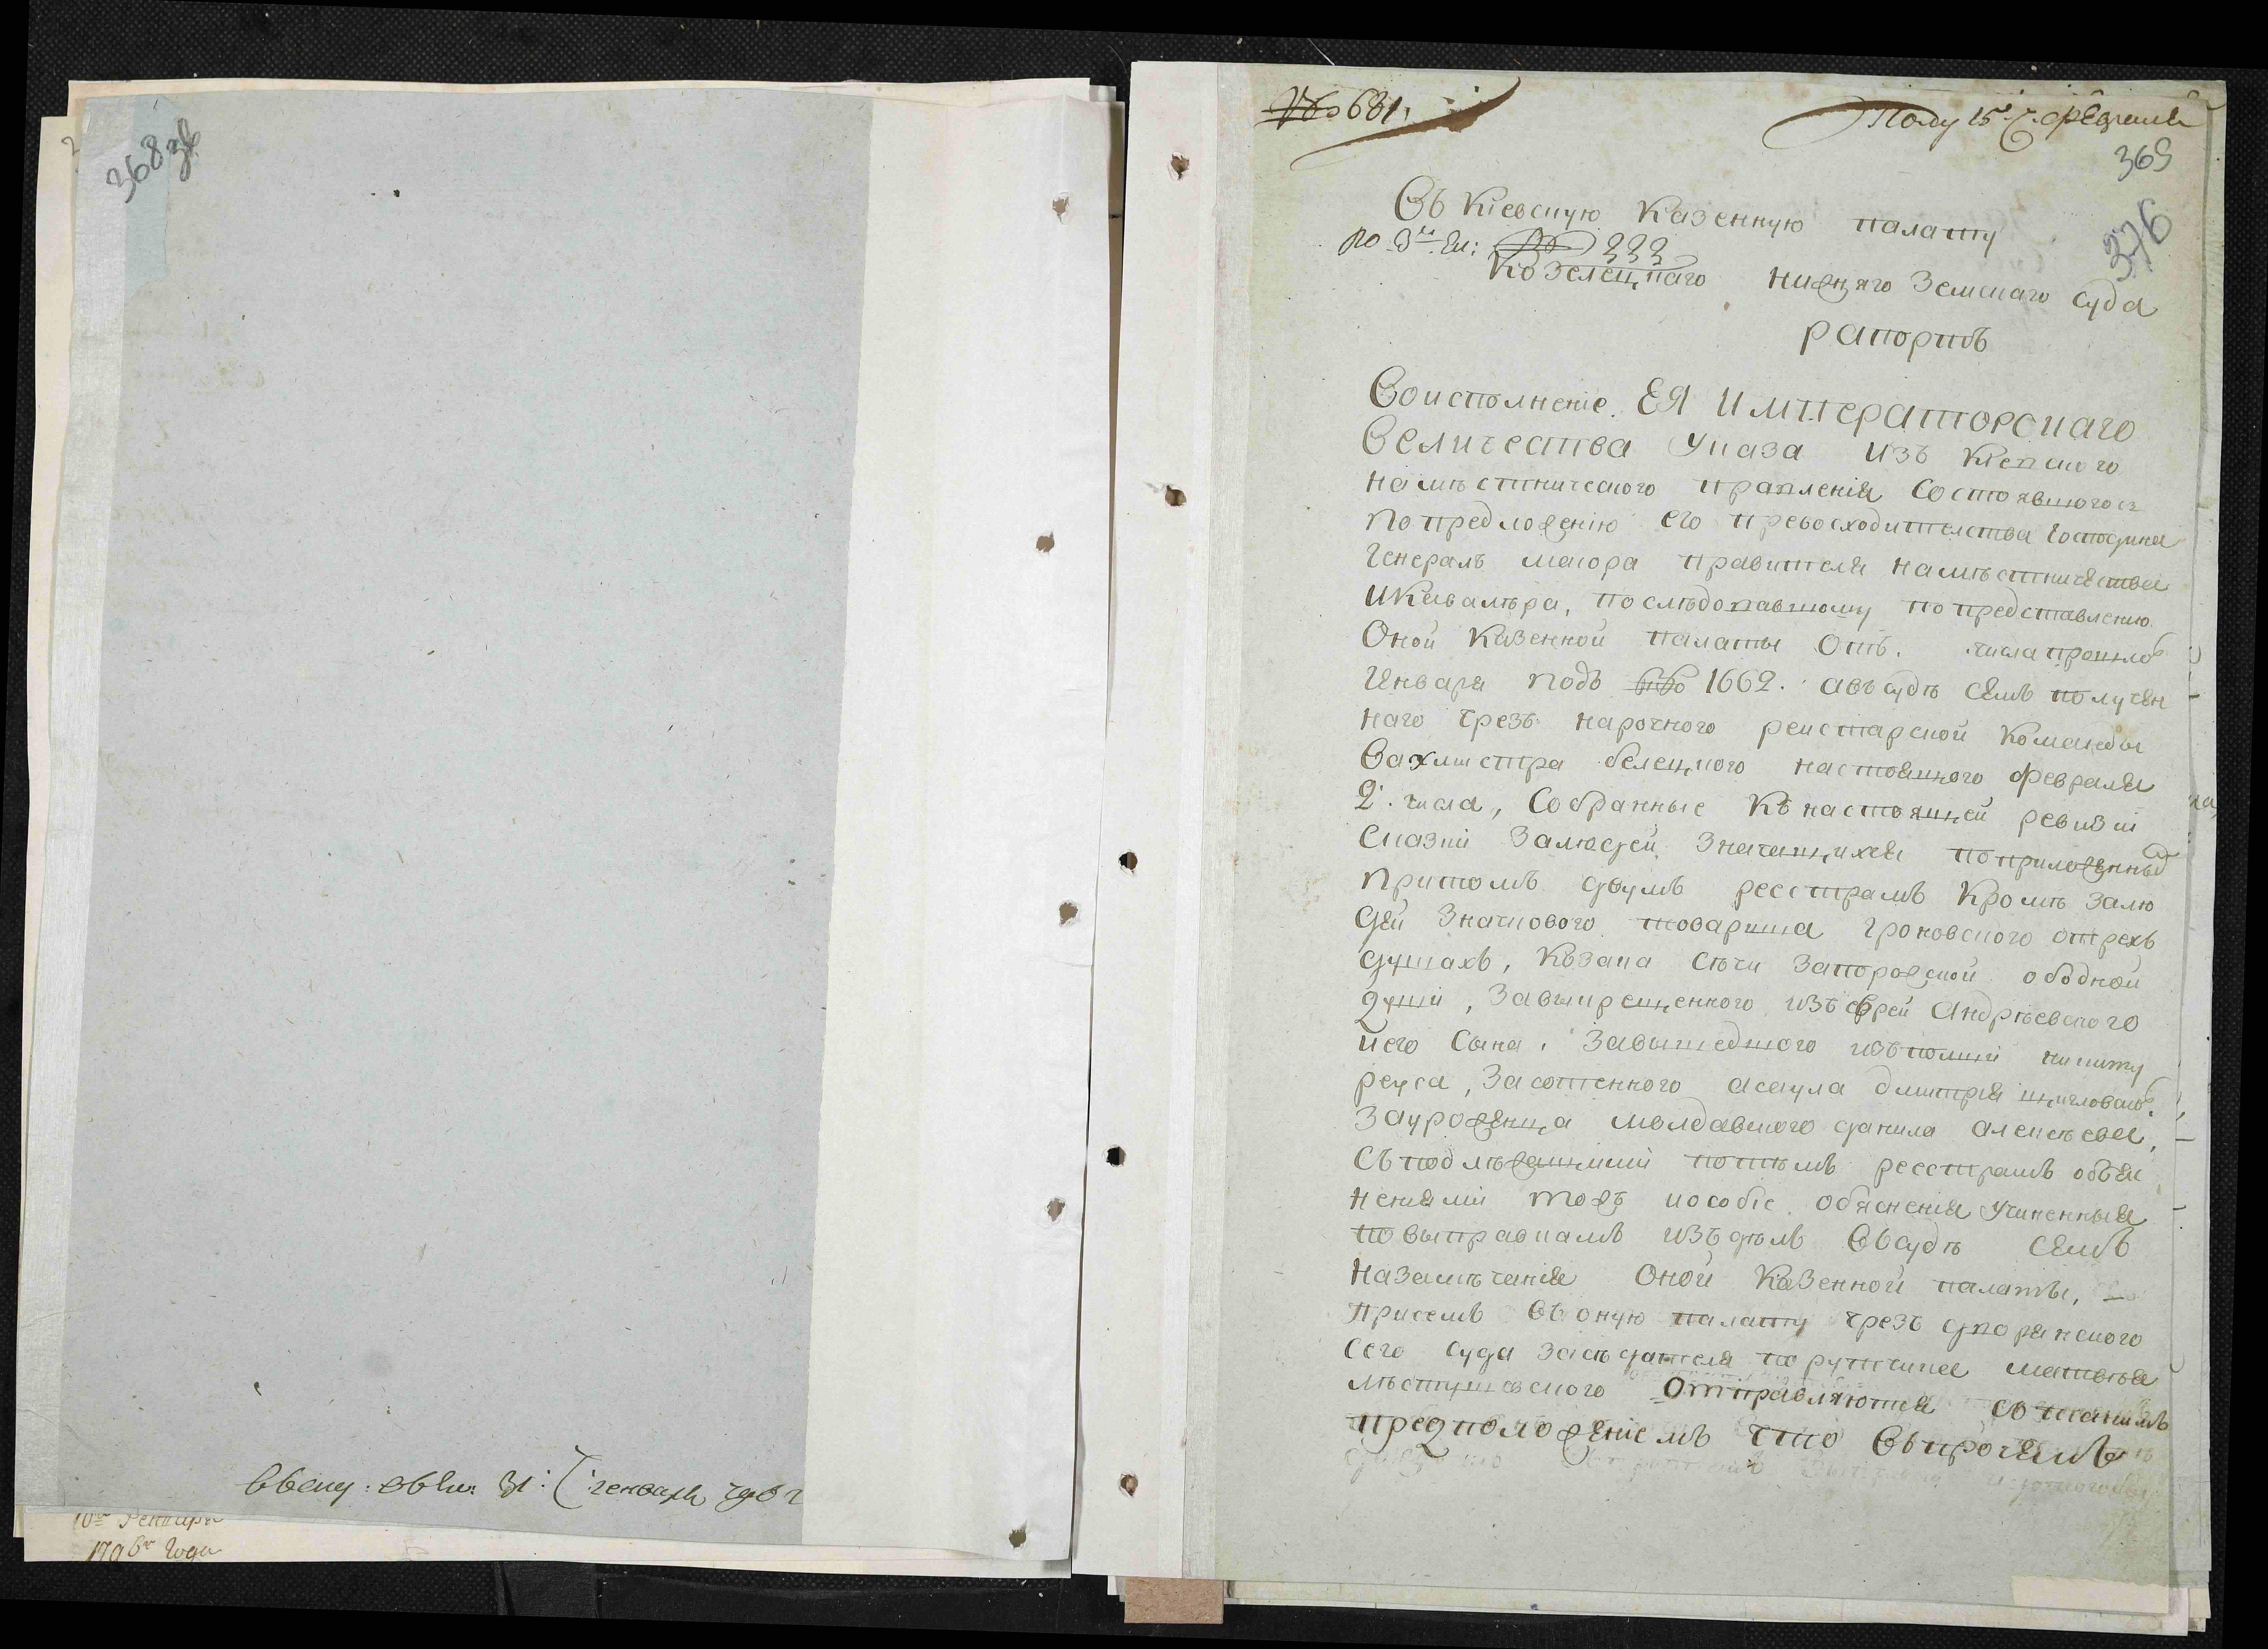 368 зв
Генваря
179б го Года
№ 681.
Полу 15 февраля
369
376
Въ Кіевскую Казенную палату
по 3й Эк: № 333
Козелецкаго нижняго Земскаго суда
рапортъ
Воисполненіе ЕЯ ИМПЕРАТОРСКАГО
Величества Указа изъ Кіевского
намѣстнического правленія состоявшогося
попредложенію его превосходителства господина
Генералъ маиора правителя намѣстничества
икавалѣра, послѣдовавшому попредставлению
Оной Казенной палаты Отъ. числа прошлог
Генваря подъ № 1662. авъсудѣ семъ получен
наго чрезъ нарочного реистарской команды
Вахмистра белецкого настоящого февраля
2. числа, Собранные Къ настоящей ревизіи
Сказки Залюдей Значащихся поприложенны
притомъ двумъ реестрамъ Кромѣ Залю
дей Значкового товариша Гроновского отрехъ
душахъ, Козака Сѣчи Запорожской ободной
души, Завыкрещенного изъ Еврей Андрѣевского
иего Сына, Завышедшого изъ полши никиту
реуса, Засотенного асаула дмитрія
Зауроженца молдавского данила алексѣева,
Съ подлѣжащими потѣмъ реестрамъ объяс
неніями тожъ иособіе обясненія Учиненныя
повыправкамъ изъ дѣлъ Въсудѣ семъ
назамѣчанія Оной Казенной палаты,
присемъ въ оную палату чрезъ дворянского
сего суда засѣдателя порутчика матвѣя
Отправляются со таким
предположеніемъ что Въпрочемъ